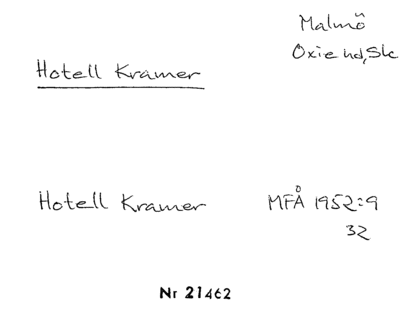 Malmö
Oxie hd, Sk
Hotell Kramer
Hotell Kramer MFÅ 1952:9
32
Nr 21462